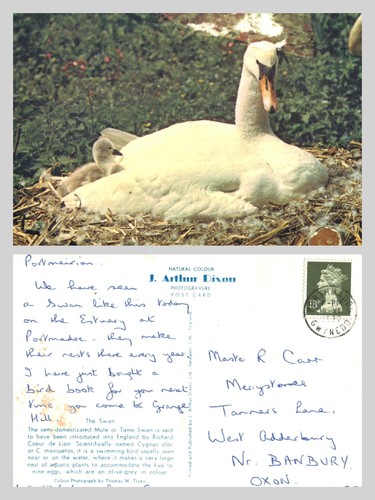 Portmeirion.
We have seen
a Swan like this today
on the Estuary at
Portmadoc. they make
their nests there every year
I have just bought a
bird book for you next
time you come to Grange
Hill.
NATURAL COLOUR
J. Arthur Dixon
PHOTOGRAVURE
POST CARD
The Swan
The semi-domesticated Mute or Tame Swan is said
to have been introduced into England by Richard
Coeur de Lion. Scientifically named Cygnus olor
or C. mansuetus, it is a swimming bird usually seen
near or on the water, where it makes a very large
nest of aquatic plants to accommodate the five to
nine eggs, which are an olive-grey in colour
Colour Photograph by Thomas W.
GWYNEDD
Master R Carr
Merrystones
Tanners Lane,
West Adderbury
Nr. BANBURY.
OXON.